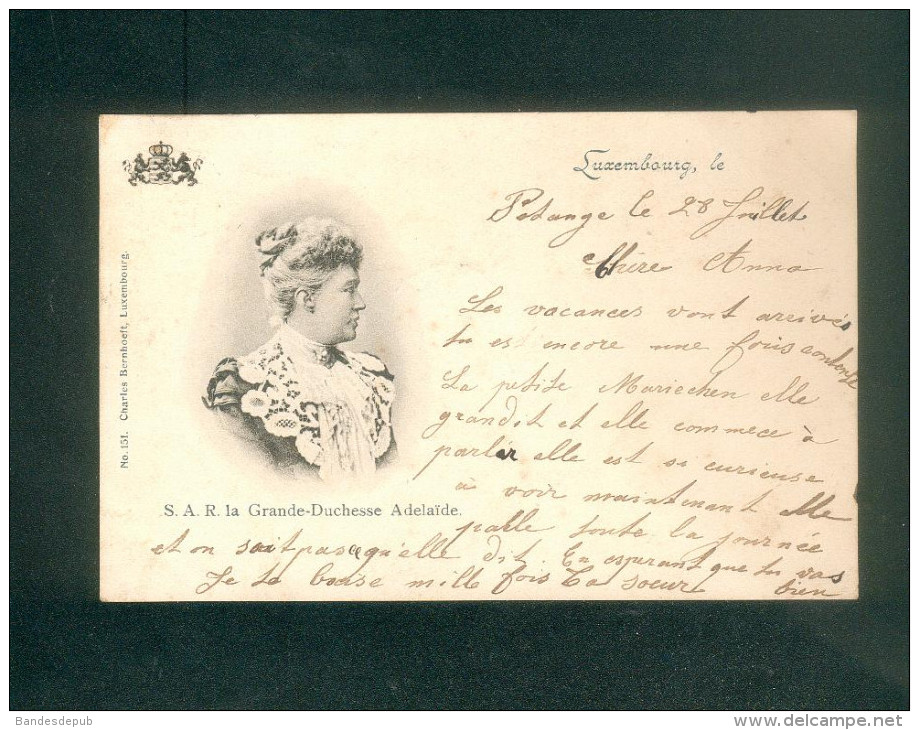 Luxembourg, le
Petange le 28 Juillet
Chère Anna
Les vacances vont arrivés
tu est encore une fois contente
La petite Mariechen elle
grandit et elle commece à
parler elle est si curieuse
à voir maintenant elle
parle toute la journée
et on sait pas qu'elle dit. En esperant que tu vas
bien
Je te baise mille fois ta soeur
No. 151. Charles Bernhoeft, Luxembourg.
S. A. R. la Grande-Duchesse Adelaïde.
Bandesdepub
www.delcampe.net